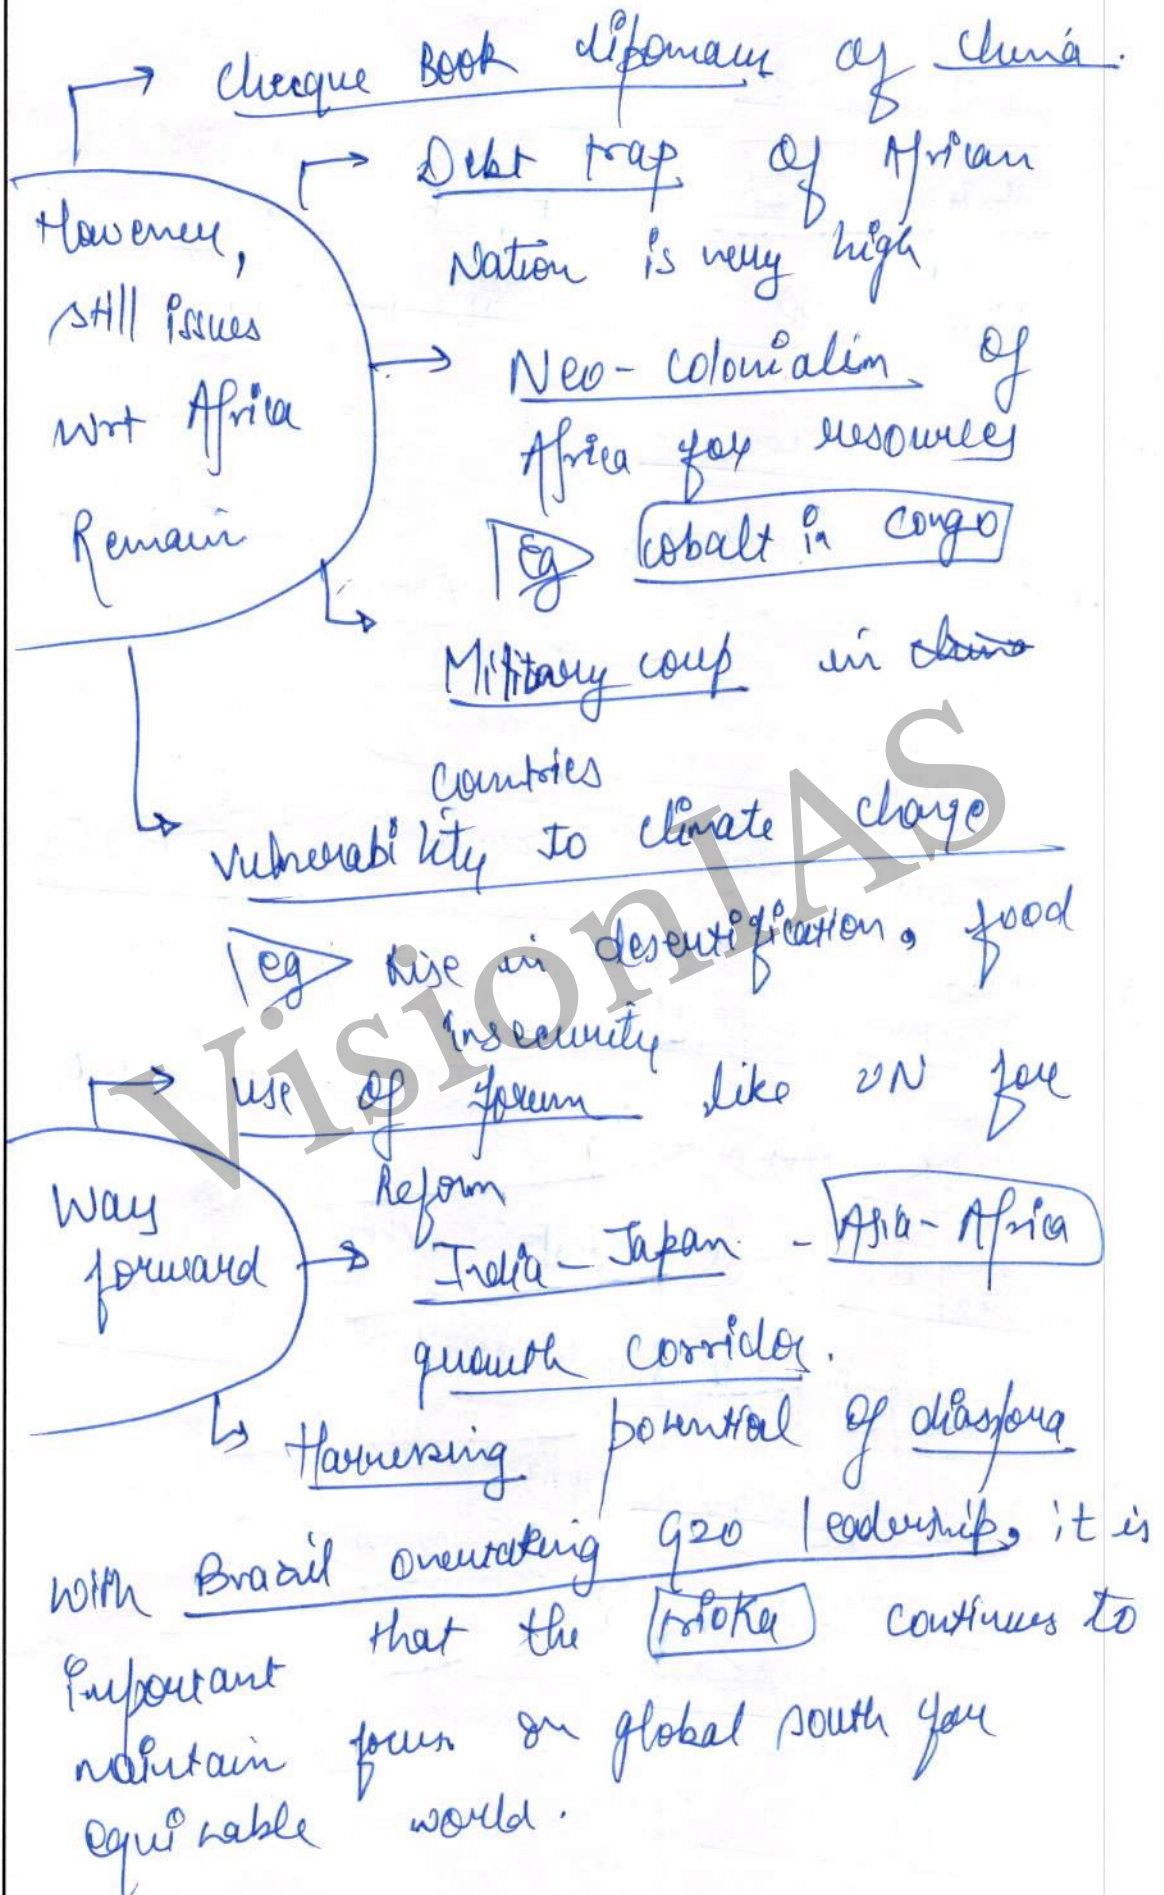 Checque Book dipomacy of China.
Debt trap of African
Nation is very high
However,
still issues
wrt Africa
Remain
Neo-colonialim of
Africa for resources
Eg cobalt in Congo
Military coup in china
countries
vulnerability to climate change
eg Rise in desertification, food
insecurity
use of forum like UN for
Reform
Way
forward
India-Japan - Asia-Africa
growth corridor.
Harnessing potential of diaspora
With Brazil overtaking G20 leadership, it is
important that the trioka continues to
maintain focus on global south for
equitable world.
VisionIAS